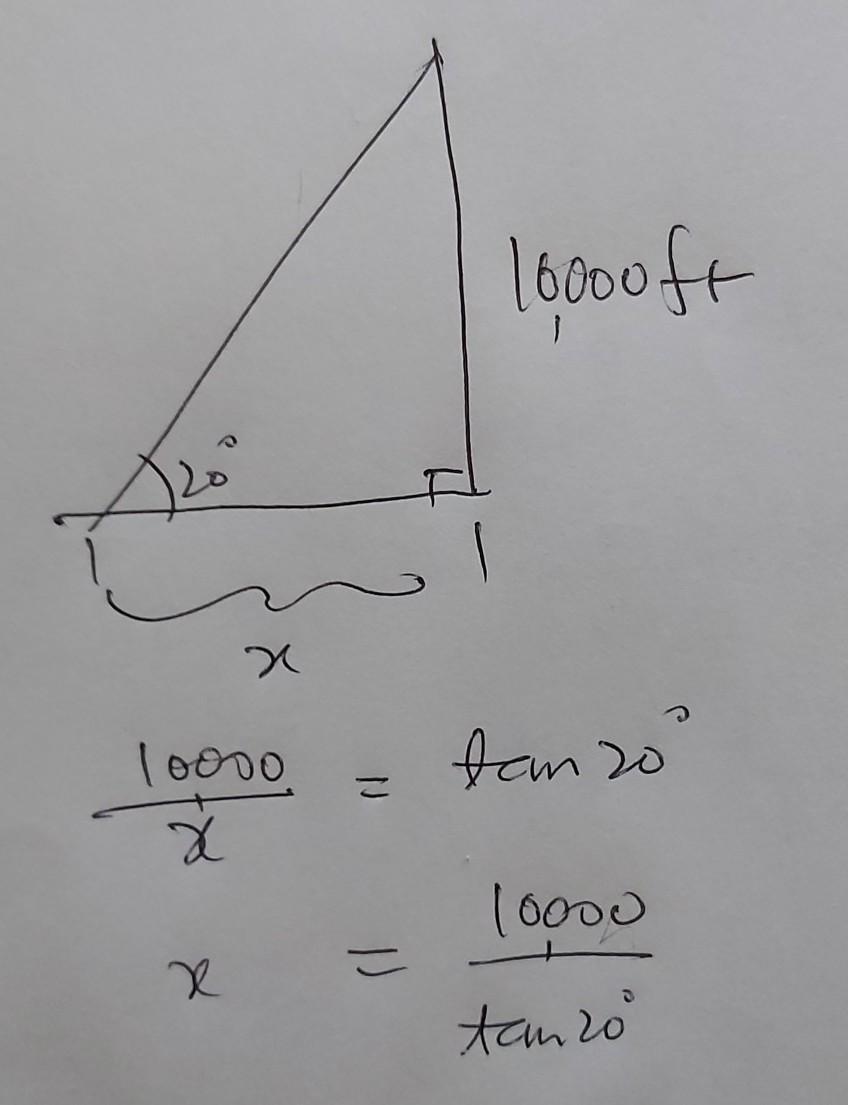 10,000 ft
20°
x
10,000/x = tan 20°
x = 10,000/tan 20°